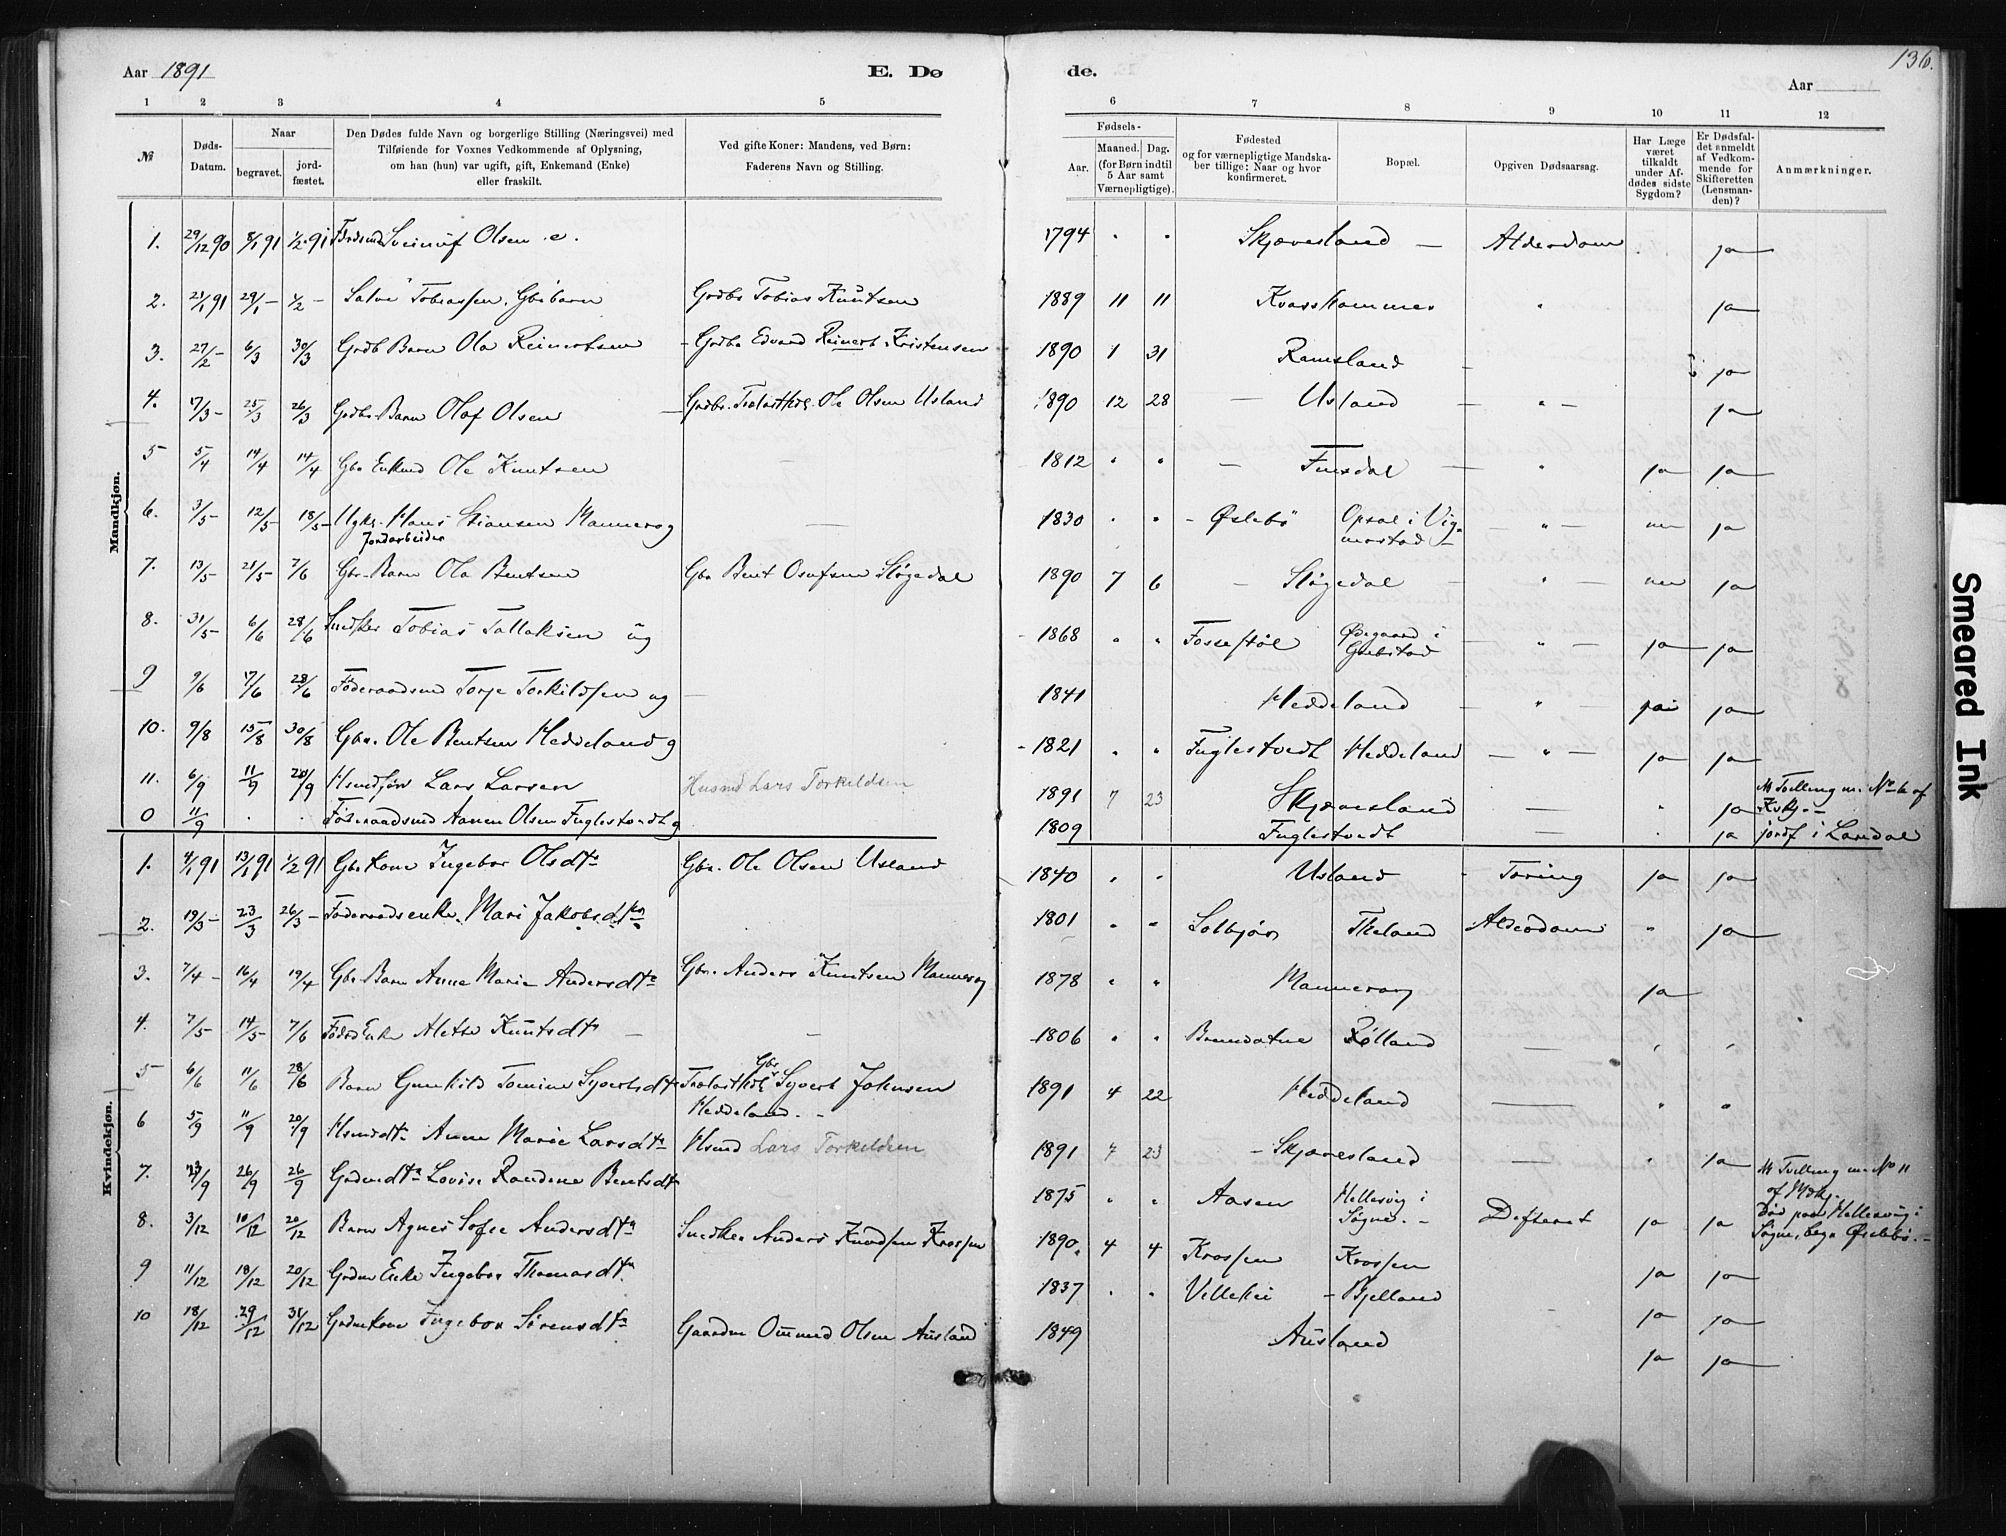 Aar 1891 E. Dø de. Aar 136.
1 2 3 4 5 6 7 8 9 10 11 12
№ Døds-Datum. Naar begravet. jord-fæstet. Den Dødes fulde Navn og borgerlige Stilling (Næringsvei) med Tilføiende for Voxnes Vedkommende af Oplysning, om han (hun) var ugift, gift, Enkemand (Enke) eller fraskilt. Ved gifte Koner: Mandens, ved Børn: Faderens Navn og Stilling. Fødsels- Aar. Maaned. Dag. (for Børn indtil 5 Aar samt Værnepligtige). Fødested og for værnepligtige Mandska-ber tillige: Naar og hvor konfirmeret. Bopæl. Opgiven Dødsaarsag. Har Læge været tilkaldt under Af-dødes sidste Sygdom? Er Dødsfal-det anmeldt af Vedkom-mende for Skifteretten (Lensman-den)? Anmærkninger.
Mandkjøn.
1. 29/12 90 8/1 91 1/2 91 Sveinuf Olsen e. 1794 " " Skjævesland — Alderdom ja
2. 91 29/1 – 1/2 – Salve Tobiassen, Gbr barn Grdbr Tobias Knutsen 1889 11 11 Kvasshommer " ja
3. 27/2 – 6/3 30/3 Grdb Barn Ola Reinertsen Grdbr Edvard Reinert Kristensen 1890 1 31 Ramsland ja
4. 17/3 – 25/3 26/3 Grdbr Barn Olaf Olsen Grdbr. Ole Olsen Usland 1890 12 28 — Usland — " — ja
5 5/4 14/4 14/4 Gbr Enkmd Ole Knutsen — 1812 " " — Finsdal — " ja ja
6. 3/5 12/5 18/5 Ugkr. Hans Stiansen Mannevog — 1830 " " – Øslebø Opsal i Vig-mostad – " – nei ja
Jordarbeider
7. 13/5 21/5 – 7/6 Gbr. Barn Ola Bentsen Gbr Bent Osufsen Støgedal 1890 7 6 — Støgedal — " — nei ja
8. 31/5 – 6/6 28/6 Snedker Tobias Tallaksen ug – 1868 " " Fossestøl Ødegaard i Grebstad — " — ja ja
9 9/6 17/6 28/6 Føderaadsmd Torje Torkildsen ug — 1841 Heddeland — " — jai ja
10. 9/8 15/8 30/8 Gbr. Ole Bentsen Heddeland g – 1821 " " Fuglestvedt Heddeland — " — ja ja
11. 6/9 11/9 20/9 Lars Larsen Husmd Lars Torkeldsen 1891 7 23 Skjævesland — " ja Tvilling m. No 6 af Kvkj.–
0 11/9 " " Føderaadsmd Aanen Olsen Fuglestvedt g 1809 Fuglestvedt — " ja jordf i Laudal
Kvindekjøn.
1. 4/1 91 13/1 91 1/2 91 Gbr Kone Ingebor Olsdtr Gbr. Ole Olsen Usland 1840 " " Usland Tæring ja ja
2. 19/3 – 23/3 26/3 – Føderaadsenke Mari Jakobsdtr 1801 " " Solbjør Theland Alderdom " ja
3. 7/4 – 16/4 19/4 Gbr Barn Anne Marie Andersdtr Gbr. Anders Knutsen Mannevog 1878 " " Mannevog ja
4. 7/5 14/5 7/6 Føds Enke Alette Knutsdtr — — 1806 " " Røiland — " "
5 6/6 11/6 28/6 Barn Gunhild Tomine Syvertsdtr Gbr Syvert Johnsen Heddeland. – 1891 4 22 Heddeland — " "
6 5/9 11/9 20/9 Hsmdsdtr Anne Marie Larsdtr Hsmd Lars Torkeldsen 1891 7 23 – Skjævesland — " ja Tvilling m. No 11 af Mdkj.
7. 13/9 26/9 26/9 Grdmdtr Lovise Randine Bentsdtr 1875 " " Aasen Hellesvig i Søgne. – Defterit ja ja Død paa Hellesvig i Søgne, begr Øslebø. –
8. 3/12 10/12 20/12 Barn Agnes Sofie Andersdtr Snedker Anders Knudsen Krossen 1890. 4 4 Krossen Krossen ja ja
9 11/12 18/12 20/12 Grdm Enke Ingebor Thomasdtr 1837 " " Villehei – Bjelland – ja ja
10 18/12 29/12 31/12 Grdm kone Ingebor Sørensdtr Gaardm Ommund Olsen Ausland 1849 Ausland ja ja
Smeared Ink